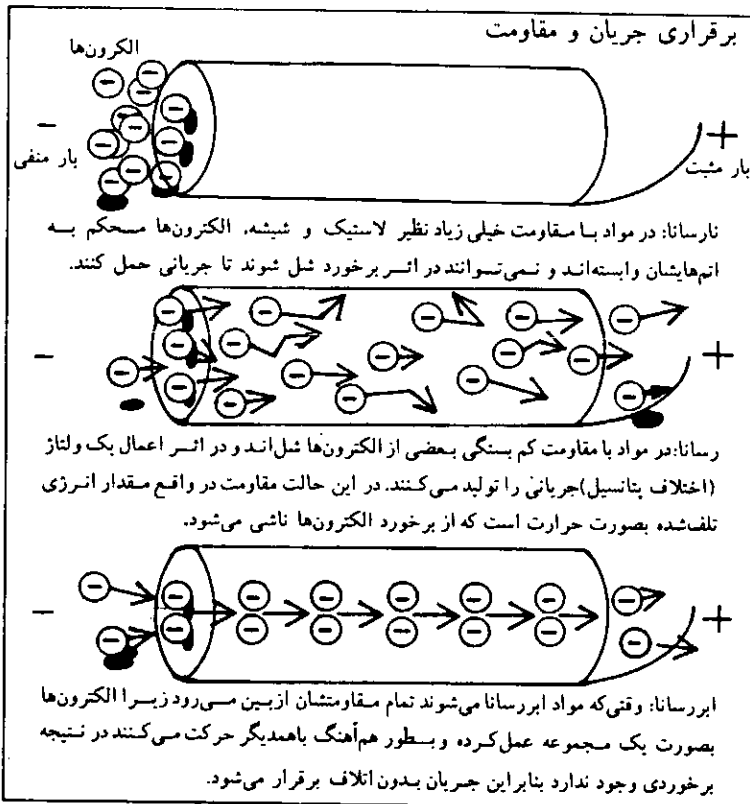 برقراری جریان و مقاومت
الکرون‌ها
−
+
بار منفی
بار مثبت
نارسانا: در مواد بـا مـقاومت خیلی زیاد نظیر لاستیک و شیشه، الکترون‌ها مسحکم بـه
اتم‌هایشان وابسته‌انـد و نـمی‌تـوانند در اثـر برخورد شل شوند تا جریانی حمل کنند.
−
+
رسانا:در مواد با مقاومت کم بستگی بـعضی از الکترون‌ها شل‌انـد و در اثـر اعمال یک ولتاژ
(اختلاف پتانسیل)جریانی را تولید مـی‌کـنند. در این حالت مقاومت در واقـع مـقدار انـرژی
تلف‌شده بصورت حرارت است که از برخورد الکترون‌ها ناشی می‌شود.
−
+
ابررسانا: وقتی‌که مواد ابررسانا می‌شوند تمام مـقاومتشان ازبین مـی‌رود زیـرا الکترون‌ها
بصورت یک مـجموعه عمل‌کرده و بـطور هم‌آهنگ باهمدیگر حرکت مـی‌کـنند در نـتیجه
برخوردی وجود ندارد بنابراین جـریان بـدون اتلاف برقرار می‌شود.